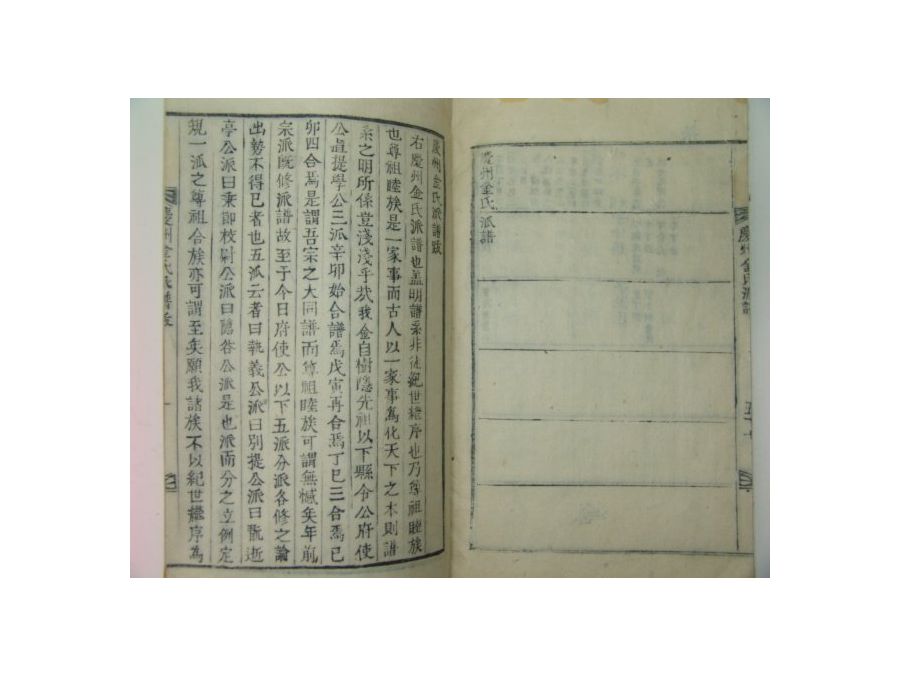 慶州金氏派譜
五十
慶州金氏派譜
慶州金氏派譜跋
右慶州金氏派譜也盖明譜系非徒紀世繼序也乃尊祖睦族
也尊祖睦族是一家事而古人以一家事爲化天下之本則譜
系之明所係豈淺淺乎哉我金自樹隱先祖以下縣令公府使
公曁提學公三派辛卯始合譜焉戊寅再合焉丁巳三合焉已
卯四合焉是謂吾宗之大同譜而尊祖睦族可謂無憾矣年前
宗派旣修派譜故至于今日府使公以下五派分派各修之論
出勢不得已者也五派云者曰執義公派曰別提公派曰翫逝
亭公派曰秉節校尉公派曰隱谷公派是也派而分之立例定
規一派之尊祖合族亦可謂至矣願我諸族不以紀世繼序爲
慶州金氏派譜跋
一